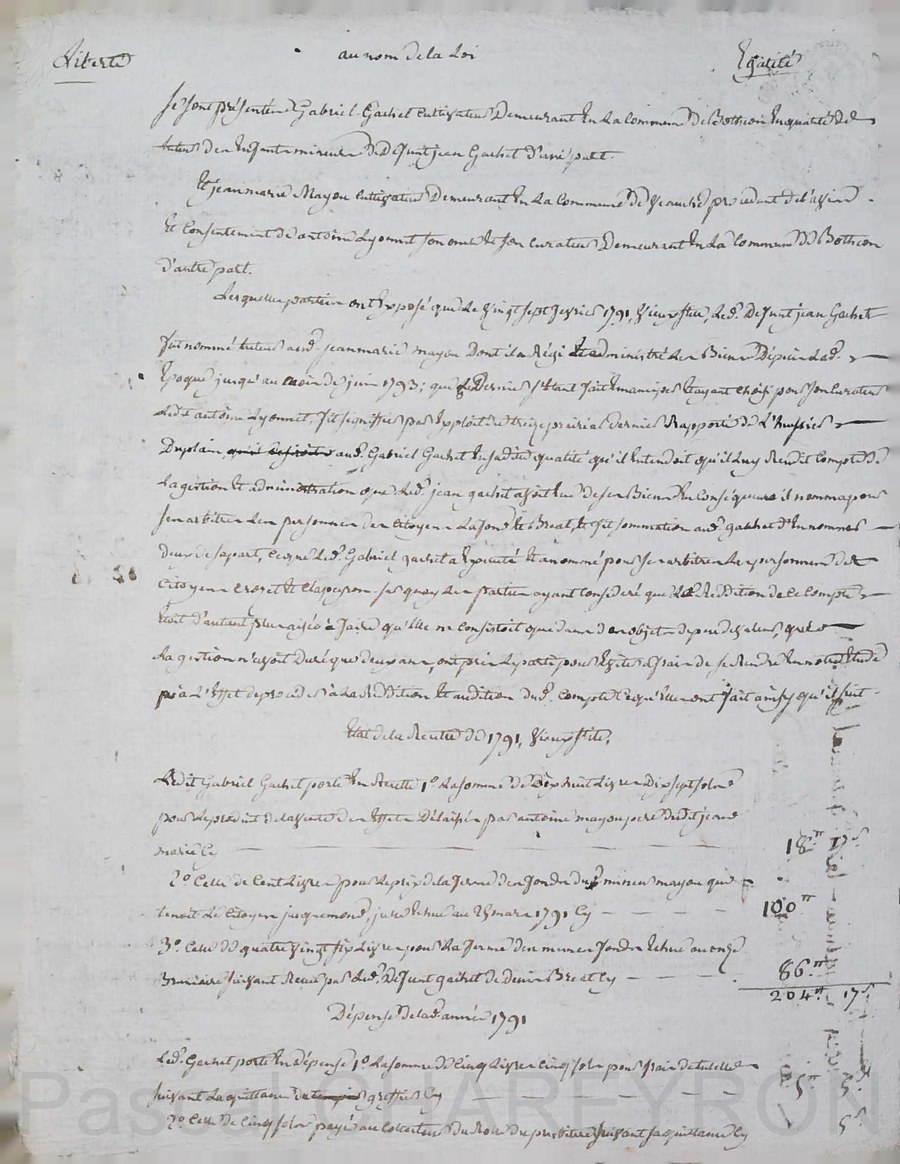 Liberté au nom de la Loi Egalité
Se sont présentés Gabriel Gachet cultivateur Demeurant En La Commune De Bothéon En qualité de
tuteur des Enfants mineurs De Défunt jean Gachet d'une part.
Et jeanmarie Mayou cultivateur Demeurant En La Commune de Veauche procedant de l'avis
Et Consentement de antoine Lyonnet son oncle Et son curateur Demeurant En La Commune De Bothéon
d'autre part.
Lesquelles parties ont Exposé que Le Vingt sept fevrier 1791, Vieux stile, Led. Defunt jean Gachet
fut nommé tuteur aud. jeanmarie mayou Dont il a Régi Et administré Les Biens Depuis Lad.
Epoque jusqu'au mois de juin 1793; que Ce Dernier s'étant fait Emanciper Et ayant choisi pour son Curateur
Ledit antoine Lyonnet, fit signifier par Exploit du treize prairial dernier Rapporté De L'huissier
Duplain aud. Gabriel Gachet En sadite qualité qu'il Entendoit qu'il Luy Rendit Compte De
La gestion Et administration que Led. jean gachet avoit Eue De ses Biens En Conséquence il nomma pour
ses arbitres Les personnes des Citoyens Lafond Et Breat, Et fit sommation aud. gachet d'En nommer
deux de sa part, Ce que Led. Gabriel gachet a Executé Et a nommé pour ses arbitres Les personnes des
Citoyens Et Clapeyron. sur quoy Les parties ayant consideré que La Reddition de Ce Compte
Etoit d'autant plus aisée à faire qu'Elle ne Consistoit que dans des objets de peu de valeur, que
La gestion n'avoit duré que deux ans, ont pris Le parti pour Eviter de se Rendre En notre Etude
pour à L'Effet de proceder à La Reddition Et audition dud. Compte Ce qu'Elles ont fait ainsy qu'il suit.
Etat de la Recette De 1791, Vieux stile,
Ledit Gabriel Gachet porte En Recette 1° La somme De Dix huit Livres Dix sept sols
pour Le produit de La vente des Effets Délaissés par antoine mayou pere dudit jean
marie Cy 18tt 17s
2° Celle de Cent Livres pour Le prix de La ferme des fonds dud. mineur mayou que
tenoit Le Citoyen jacquemond, jusé Echue au 25 mars 1791 Cy 100tt
3° Celle De quatre Vingt six Livres pour La ferme des memes fonds Echue au onze
Brumaire suivant Reçue par Led. Défunt gachet de Denis Breat Cy 86tt
204tt 17s
Dépense de Lad. année 1791
Led. Gachet porte En Dépense 1° La somme De Cinq Livres Cinq sols pour frais de tutelle
suivant La quittance du greffier Cy 5tt 5s
2° Celle de Cinq sols payé au Collecteur Du Rolle Du presbitere suivant sa quittance Cy 5s
Pascal CHAREYRON